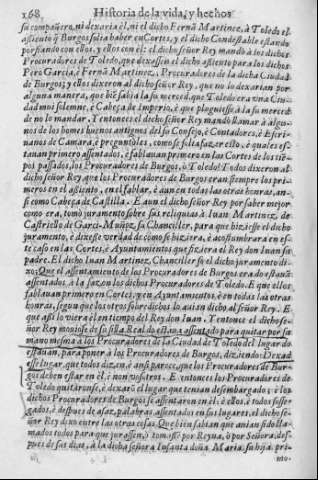 168 Historia de la vida, y hechos
su compañero, ni dexaria el, ni el dicho Fernã Martinez, à Toledo el
assiento q̃ Burgos solia haber en Cortes, y el dicho Condestable estando
porfiando con ellos, y ellos con el: el dicho señor Rey mandò à los dichos
Procuradores de Toledo, que dexassen el dicho assiento para los dichos
Pero Garcia, è Fernã Martinez, Procuradores de la dicha Ciudad
de Burgos; y ellos dixeron al dicho señor Rey, que no lo dexarian por
alguna manera, que biẽ sabia la su merced, que Toledo era vna Ciu-
dad muy solemne, è Cabeça de Imperio, è que pluguiesse à la su merced
de no lo mandar. Y entonces el dicho señor Rey mandò llamar à algu-
nos de los homes buenos antiguos del su Consejo, è Contadores, è Escri-
uanes de Camara, è preguntòles, como se solia fazer esto, è quales es-
tauan primero assentados, è fablauan primero en las Cortes de los tiẽ-
pos passados, los Procuradores de Burgos, ò Toledo? Todos dixeron al
dicho señor Rey, que los Procuradores de Burgos eran siempre los pri-
meros en el assiento, en el fablar, è aun en todas las otras honras, an-
si como Cabeça de Castilla. E aun el dicho señor Rey por saber mejor
como era, tomò juramento sobre sus reliquias à Iuan Martinez, de
Castriello de Garci-Muñoz, su Chanciller, para que hiziesse el dicho
juramento, è dixesse verdad de como se hiziera, è acostumbrara en es-
te caso en las Cortes, è Ayuntamientos que fiziera el Rey don Iuan su
padre. El dicho Iuan Martinez, Chanciller fizo el dicho juramento di-
xo: Que el assentamiento de los Procuradores de Burgos era do estauã
assentados à la saz on los dichos Procuradores de Toledo. E que ellos
fablauan primero en Cortes, y en Ayuntamientos, è en todas las otras
honras, segun que los otros sobredichos lo auien dicho al señor Rey. E
que assi lo viera el en tiempo del Rey don Iuan. Y entonce el dicho se-
ñor Rey mouiose de su silla Real do estaua assentado para quitar por su
mano mesma à los Procuradores de la Ciudad de Toledo del lugar do
estauan, para poner à los Procuradores de Burgos, diziendo: Dexad
esse lugar, que todos dizen, è ansi parece, que los Procuradores de Bur-
gos deben estar en èl, è non vosotros. E entonces los Procuradores de
Toledo quitaronse, è dexarõ el lugar que tenian desembargado; è los
dichos Procuradores de Burgos se assentaron en èl: è ellos, è todos sosse-
gados, è despues de assaz palabras assentados en sus lugares el dicho se-
ñor Rey dixo entre las otras cosas, Que bien sabian que auian sido lla-
mados todos para que jurassen, è tomassen por Reyna, ò por Señora des-
pues de sus dias, à la dicha señora Infanta doña Maria su hija pri-
mo-